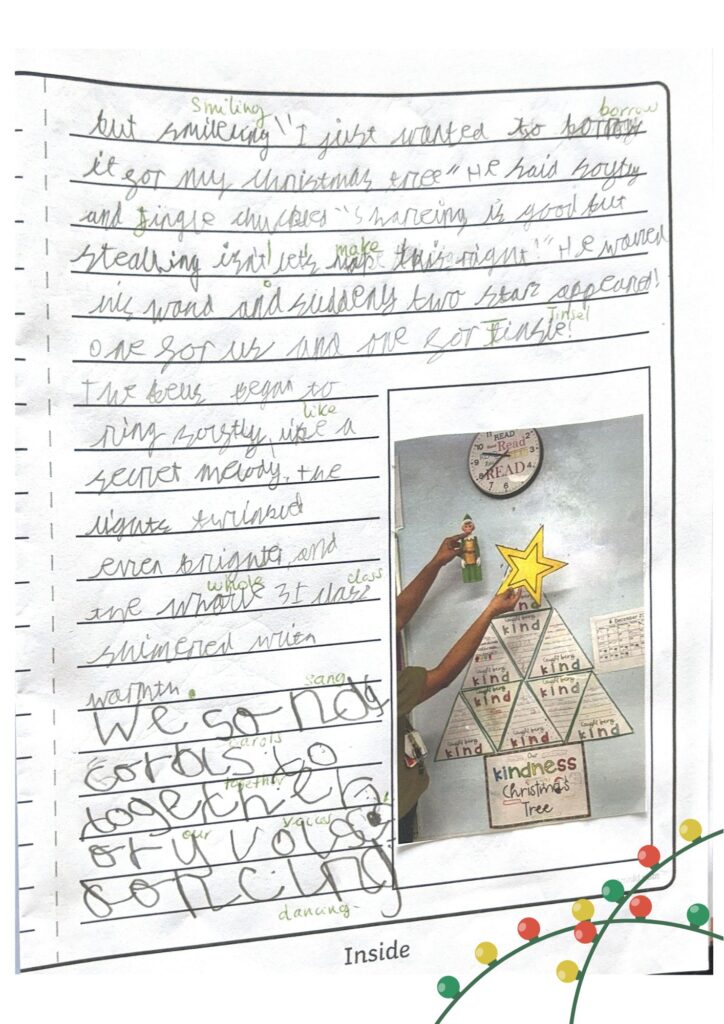 smiling borrow
but smileing "I just wanted to borrow
it for my christmas tree" He said softly
and Jingle chuckles "Shareing is good but
make
stealling isn't let's this right!" He waved
his wand and suddenly two stars appeared!
Tinsel
One for us and one for
The bells began to
like
ring softly, like a
secret melody, the
lights twinked
even brighter, and
whole class
the whole 3I class
shimered with
warmth.
sang
We
carols
to
together
together
our voices
dancing
READ
Read
READ
kind
Caught being
kind
Caught being
kind
Caught being
kind
Caught being
kind
Caught being
kind
Caught being
kind
Caught being
kind
Our
kindness
Christmas
Tree
Inside